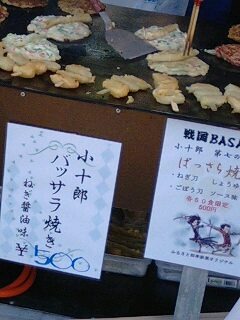 小十郎
バッサラ焼き
ねぎ醤油味
¥500
戦国BASA
小十郎 第七の
ばっさら焼
・ねぎ刀 しょうゆ
・ごぼう刀 ソース味
各60食限定
500円